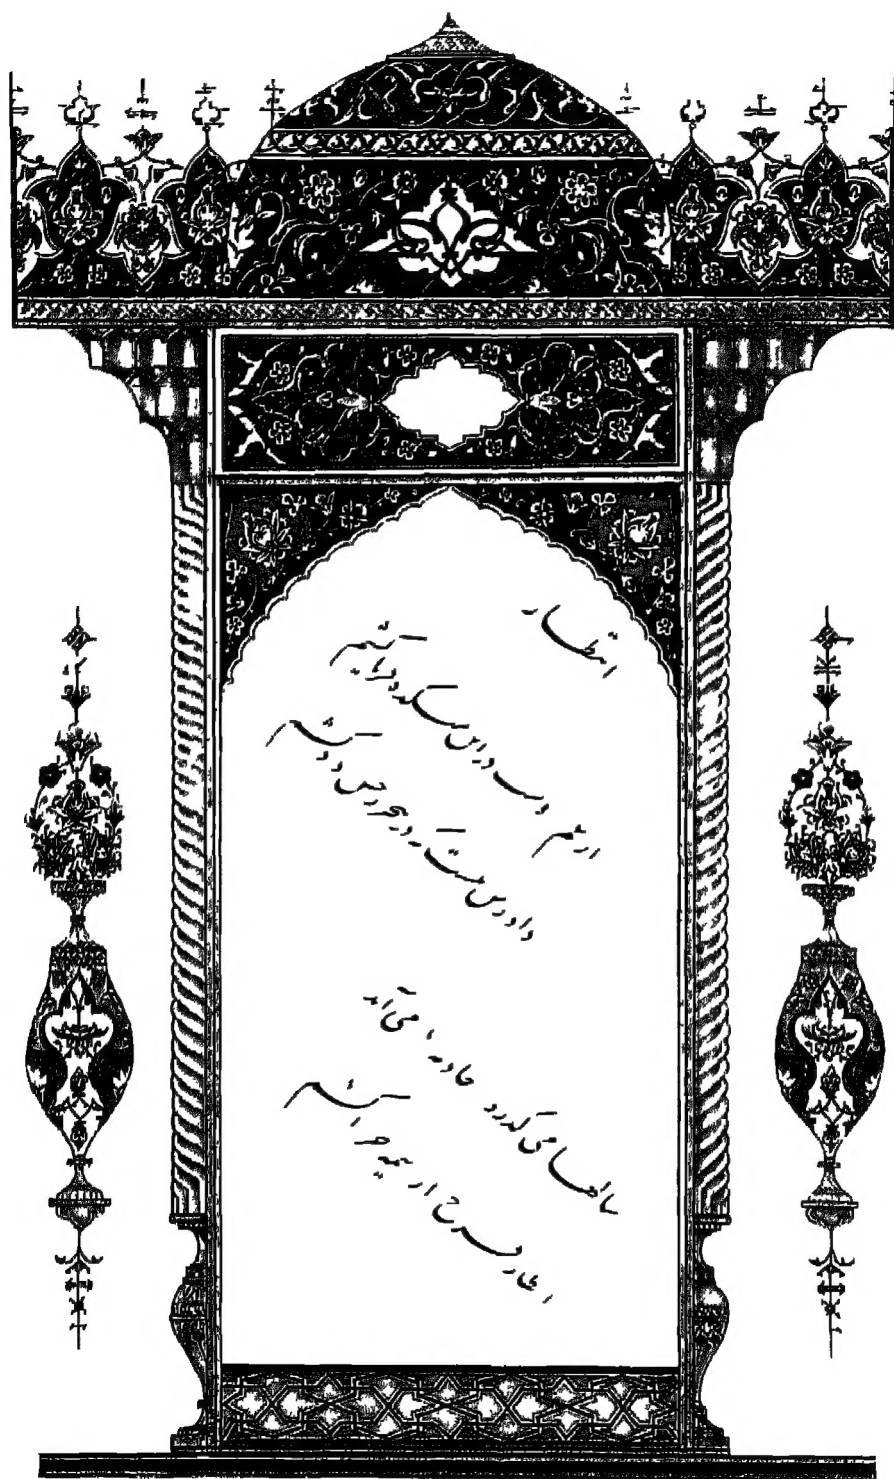 انتظار
از غم دوست در این میکده فریاد کشم
دادرس نیست که در هجر رخش داد کشم
سالها می گذرد حادثه ها می آید
انتظار فرج از نیمه خرداد کشم